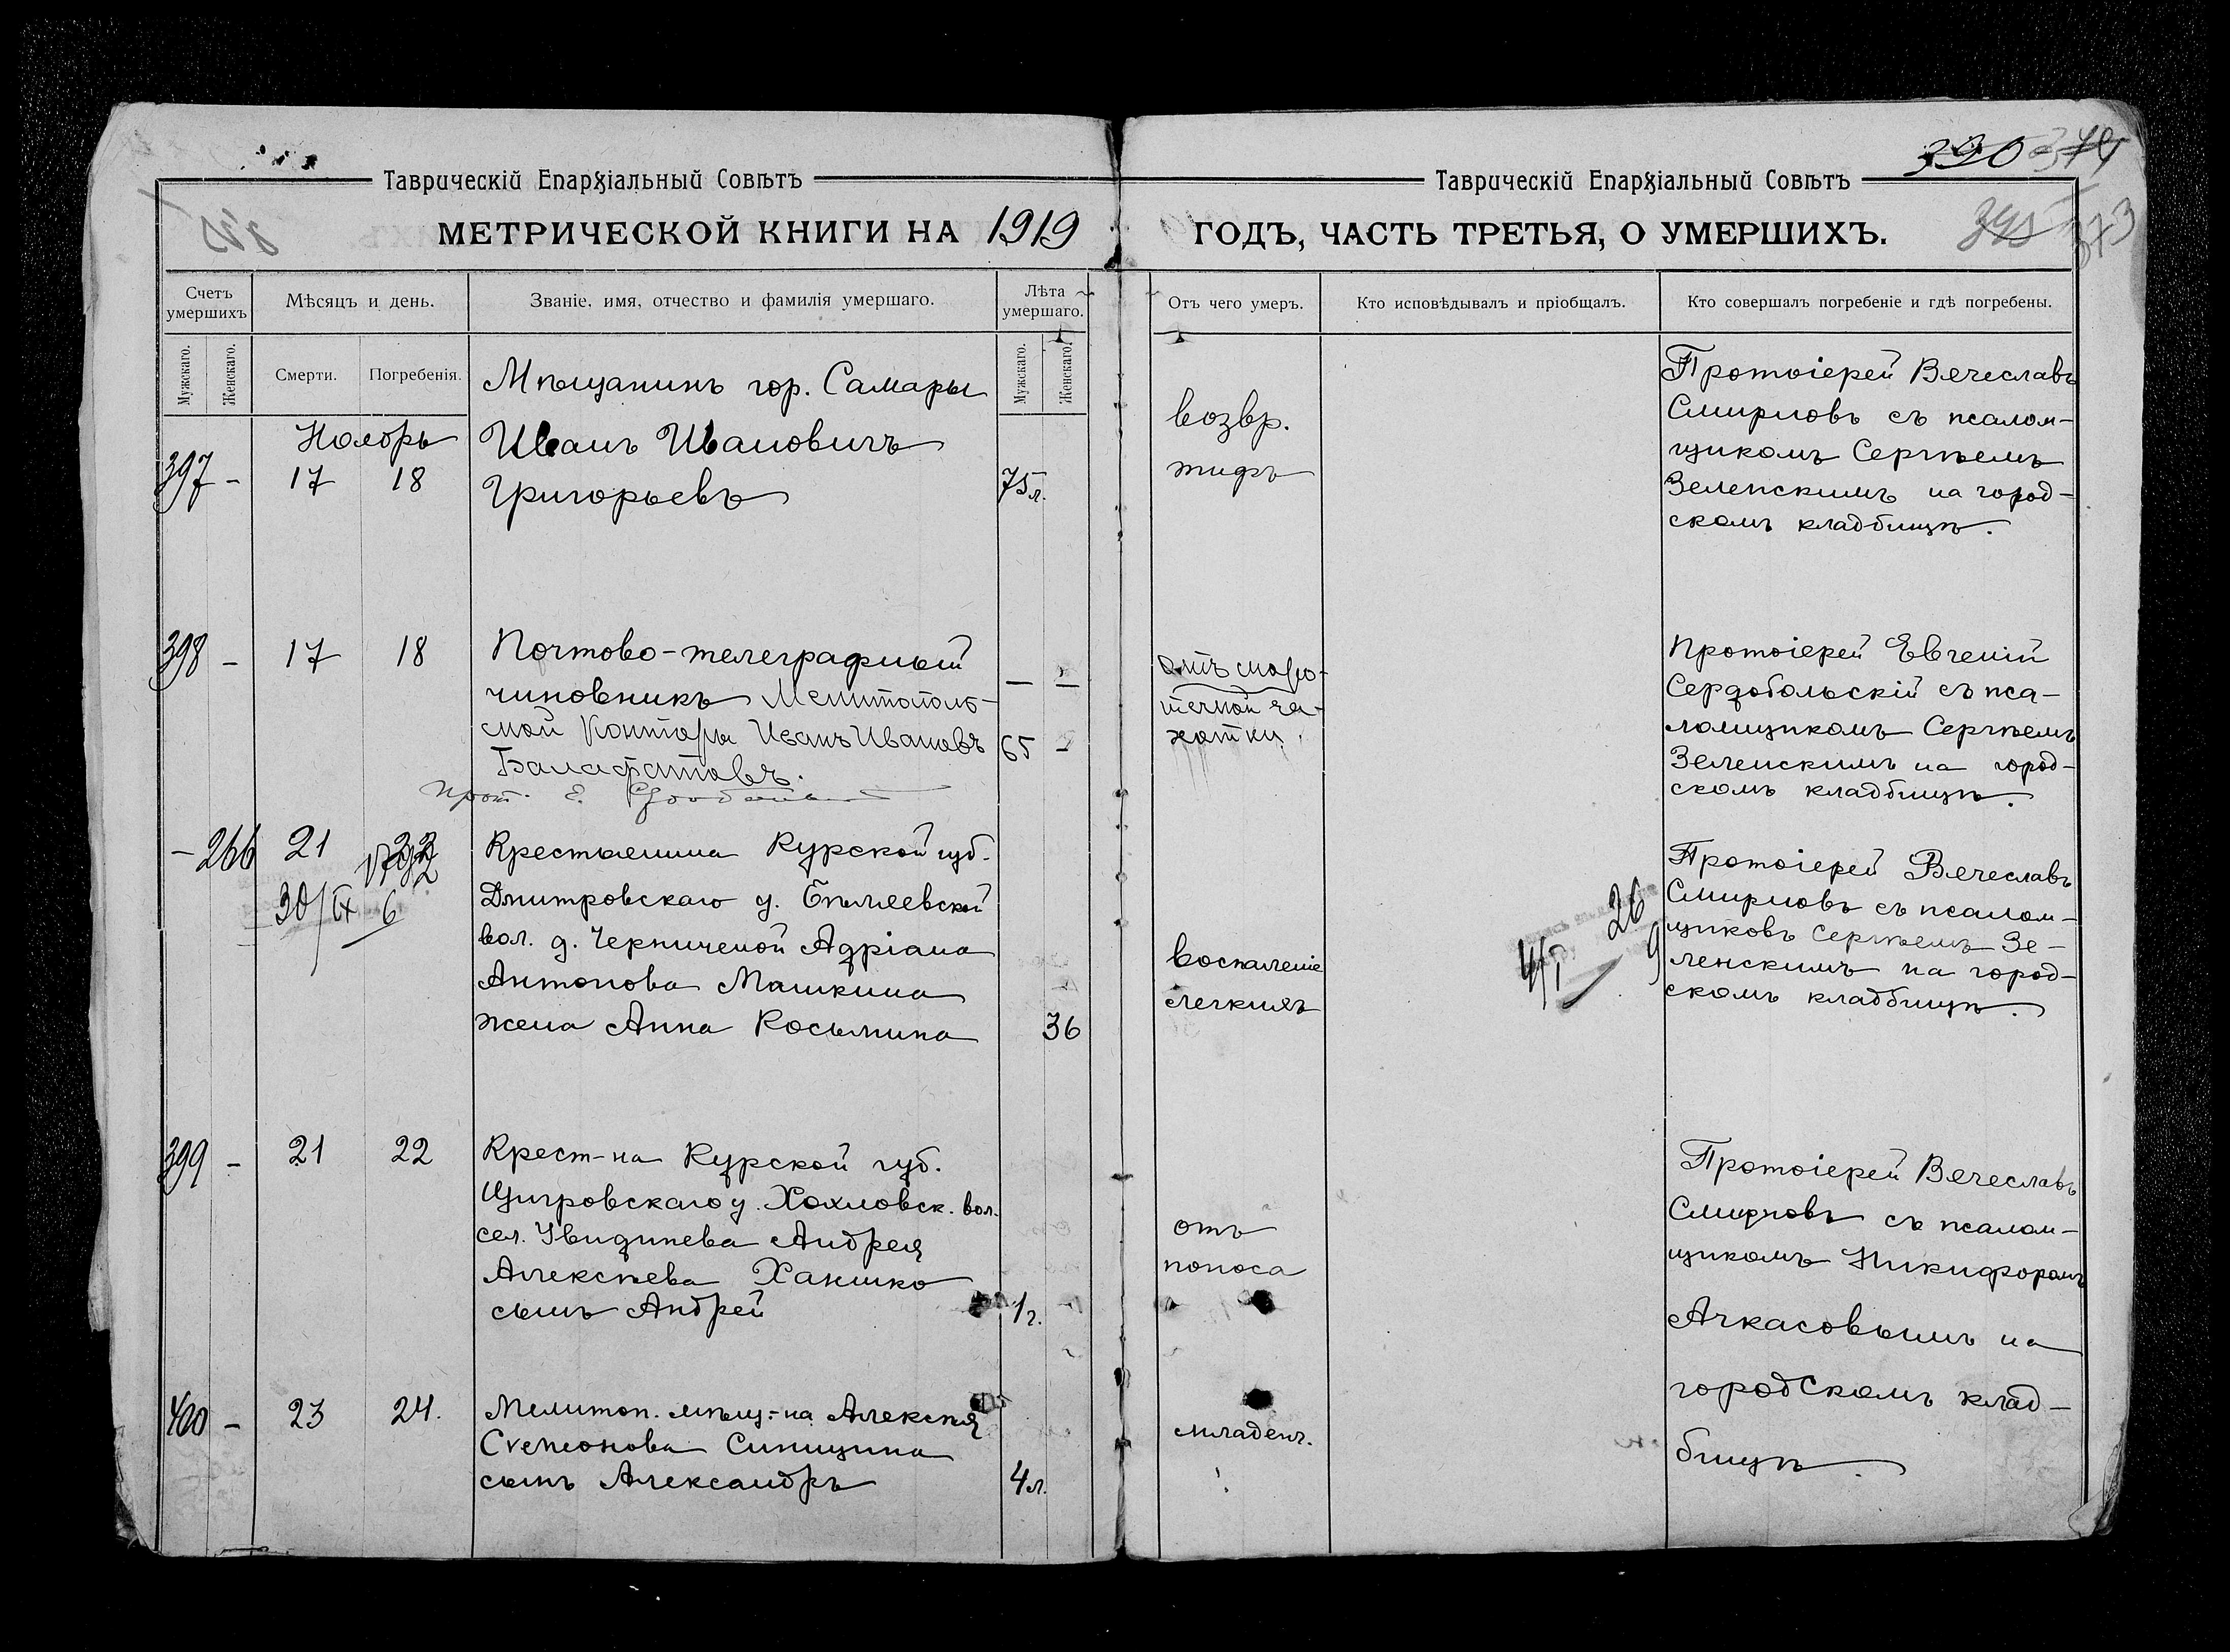 390 374
Таврическій Епархіальный Совѣтъ
Таврическій Епархіальный Совѣтъ
МЕТРИЧЕСКОЙ КНИГИ НА 1919
ГОДЪ, ЧАСТЬ ТРЕТЬЯ, О УМЕРШИХЪ.
395 373
Счетъ умершихъ
Мѣсяцъ и день.
Званіе, имя, отчество и фамилія умершаго.
Лѣта умершаго.
Отъ чего умеръ.
Кто исповѣдывалъ и пріобщалъ.
Кто совершалъ погребеніе и гдѣ погребены.
Мужскаго.
Женскаго.
Смерти.
Погребенія.
Мужскаго.
Женскаго.
Ноябрь
397 - 17 18
Мѣщанинъ гор. Самары
Иванъ Ивановичъ
Григорьевъ
75 л.
возвр.
тифъ
Протоіерей Вячеславъ
Смирновъ съ псалом-
щикомъ Сергѣемъ
Зеленскимъ на город-
скомъ кладбищѣ.
398 - 17 18
Почтово-телеграфный
чиновникъ Мелитополь-
ской Конторы Иванъ Ивановъ
65 -
Прот. Е.
отъ скоро-
течной ча-
хотки.
Протоіерей Евгеній
Сердобольскій съ пса-
ломщикомъ Сергѣемъ
Зеленскимъ на город-
скомъ кладбищѣ.
- 266 21 22
30/IX 6
Крестьянина Курской губ.
Дмитровскаго у.
вол. д. Черничной Адріана
Антонова Машкина
жена Анна Косьмина
36
воспаленіе
легкихъ
26
9
Протоіерей Вячеславъ
Смирновъ съ псалом-
щиковъ Сергѣемъ Зе-
ленскимъ на город-
скомъ кладбищѣ.
399 - 21 22
Крест-на Курской губ.
Щигровскаго у. Хохловск. вол.
сел. Андрея
Алексѣева Ханшко
сынъ Андрей
1 г.
отъ
поноса
Протоіерей Вячеславъ
Смирновъ съ псалом-
щикомъ Никифоромъ
Ачкасовымъ на
городскомъ клад-
бищѣ.
400 - 23 24.
Мелитоп. мѣщ-на Алексѣя
Стѵлѵонова Синицина
сынъ Александръ
4 л.
младенч.